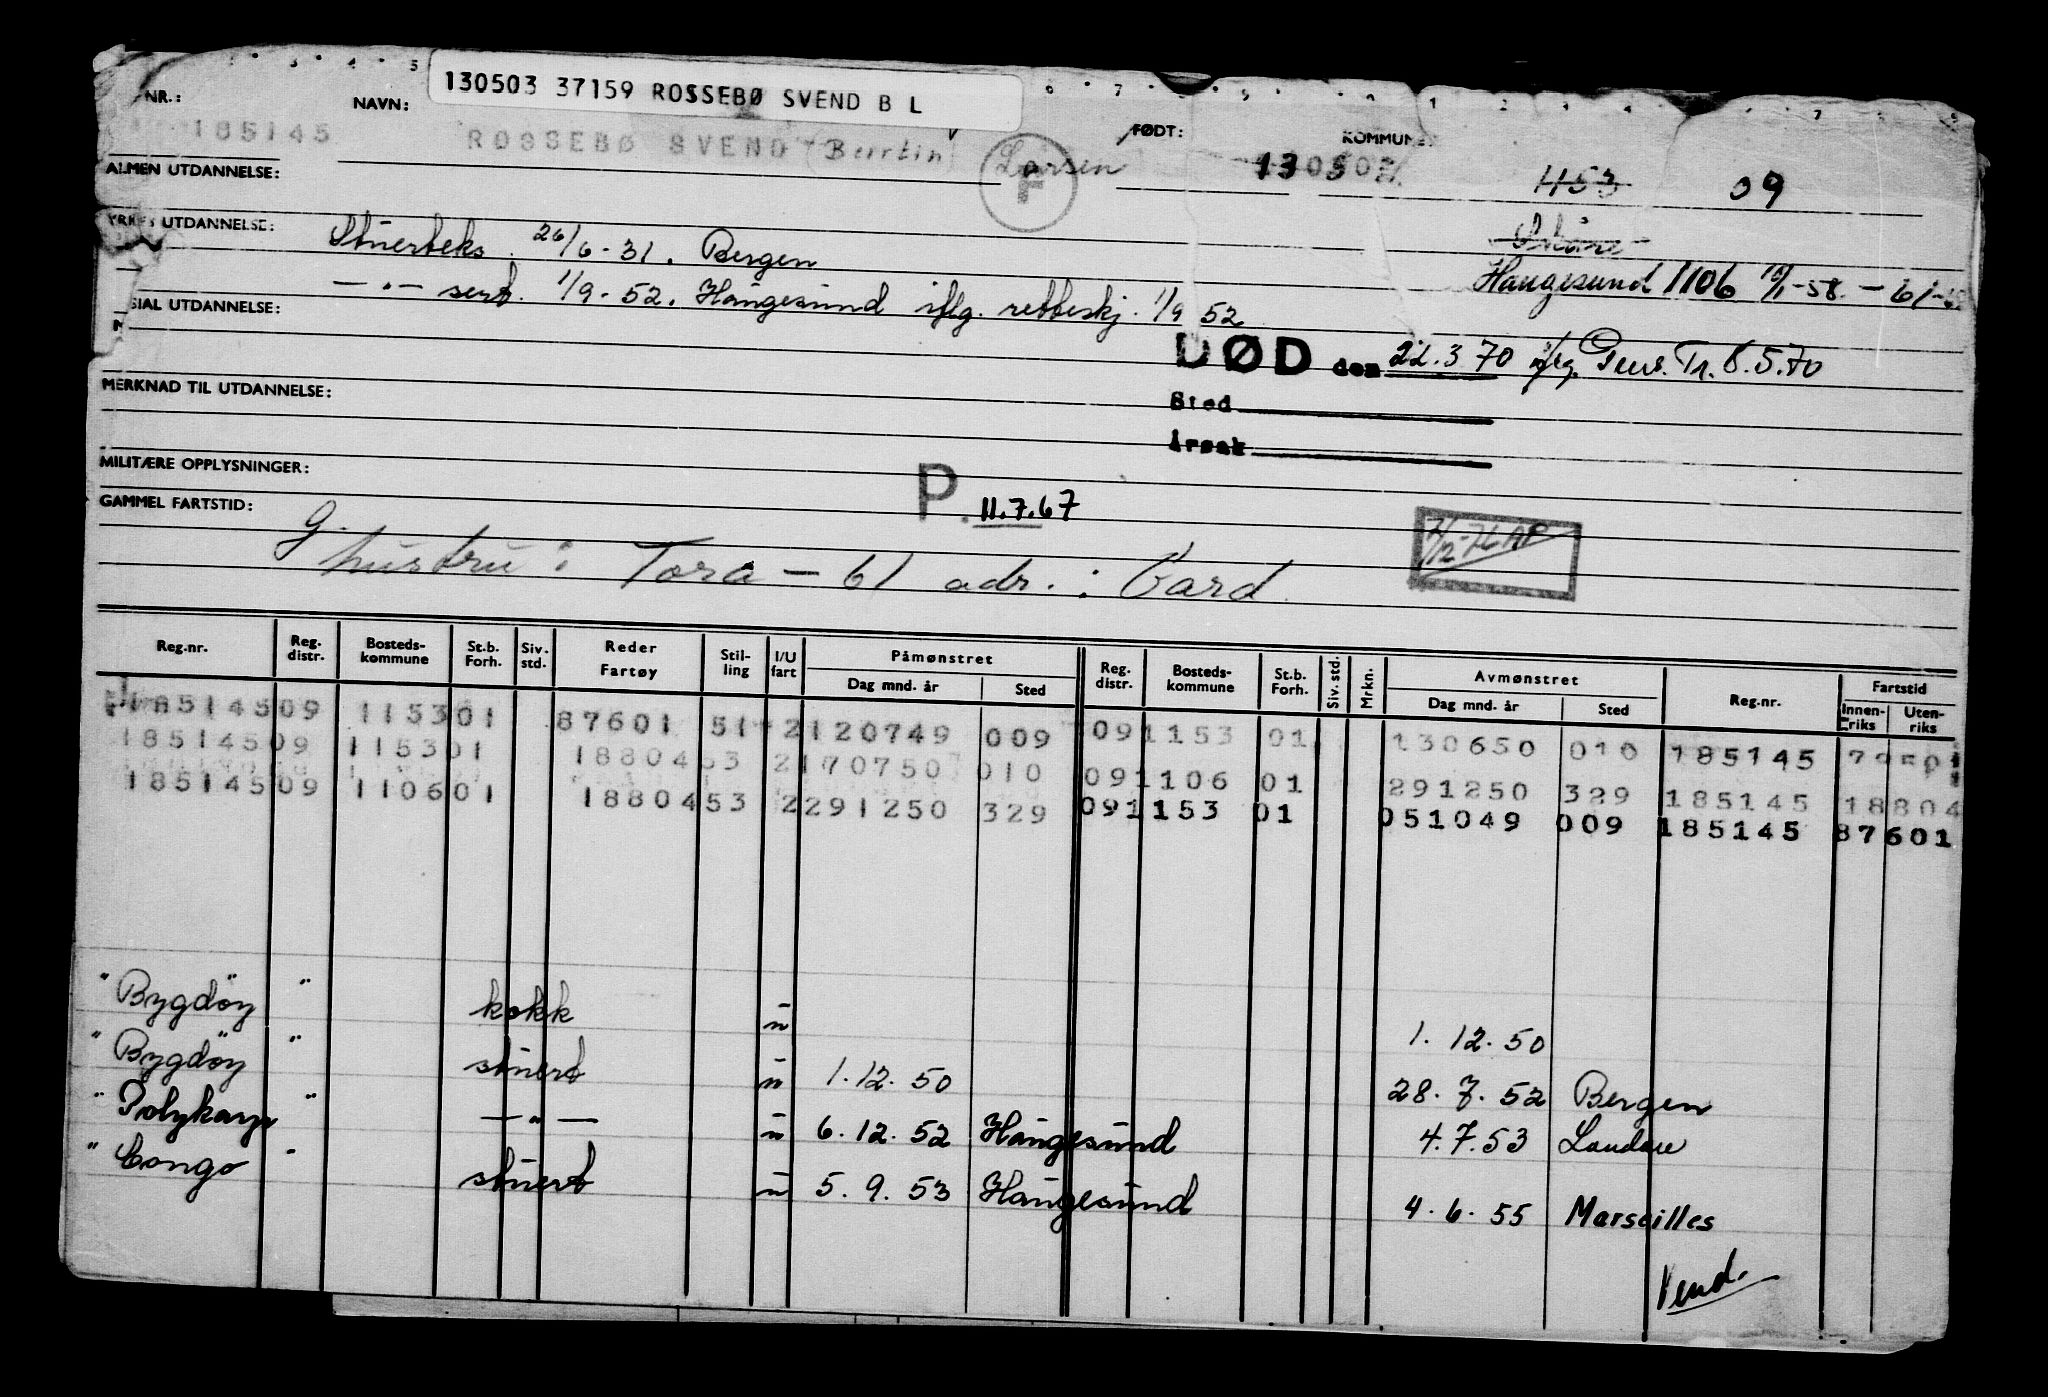 130503 37159 ROSSEBØ SVEND B L
NR.: NAVN: FØDT: KOMMUNE
185145 ROSSEBØ SVEND (Bertin) Larsen F 130503 1153 09
ALMEN UTDANNELSE:
YRKES UTDANNELSE: Stuerteks. 26/6-31. Bergen Skåre
— " — sert. 1/9-52. Haugesund iflg. retteskj. 1/9 52 Haugesund 1106 -58. - 61-
SIAL UTDANNELSE:
DØD den 22.3 70 iflg. Pens. Tr. 8.5.70
MERKNAD TIL UTDANNELSE: Sted
Årsak
MILITÆRE OPPLYSNINGER: P. 11.7.67
GAMMEL FARTSTID: G
hustru: Tora - 61 adr.: Vard
Reg.nr. Reg. distr. Bosteds-kommune St.b. Forh. Siv. std. Reder Fartøy Stil-ling I/U fart Påmønstret Dag mnd. år Sted Reg. distr. Bosteds-kommune St.b. Forh. Siv. std. Mrkn. Avmønstret Dag mnd. år Sted Reg.nr. Fartstid Innen-riks Uten-riks
185145 09 1153 01 87601 51 2 120749 009 09 1153 01 130650 010 185145
185145 09 1153 01 18804 53 2 170750 010 09 1106 01 291250 329 185145 18804
185145 09 1106 01 18804 53 2 291250 329 09 1153 01 051049 009 185145 87601
" Bygdöy " kokk u 1. 12. 50
" Bygdöy " stuert u 1. 12. 50 28. 7. 52 Bergen
" Polykarp " — " — u 6. 12. 52 Haugesund 4. 7. 53 Landøre
" Congo " stuert u 5. 9. 53 Haugesund 4. 6. 55 Marseilles
Vend.